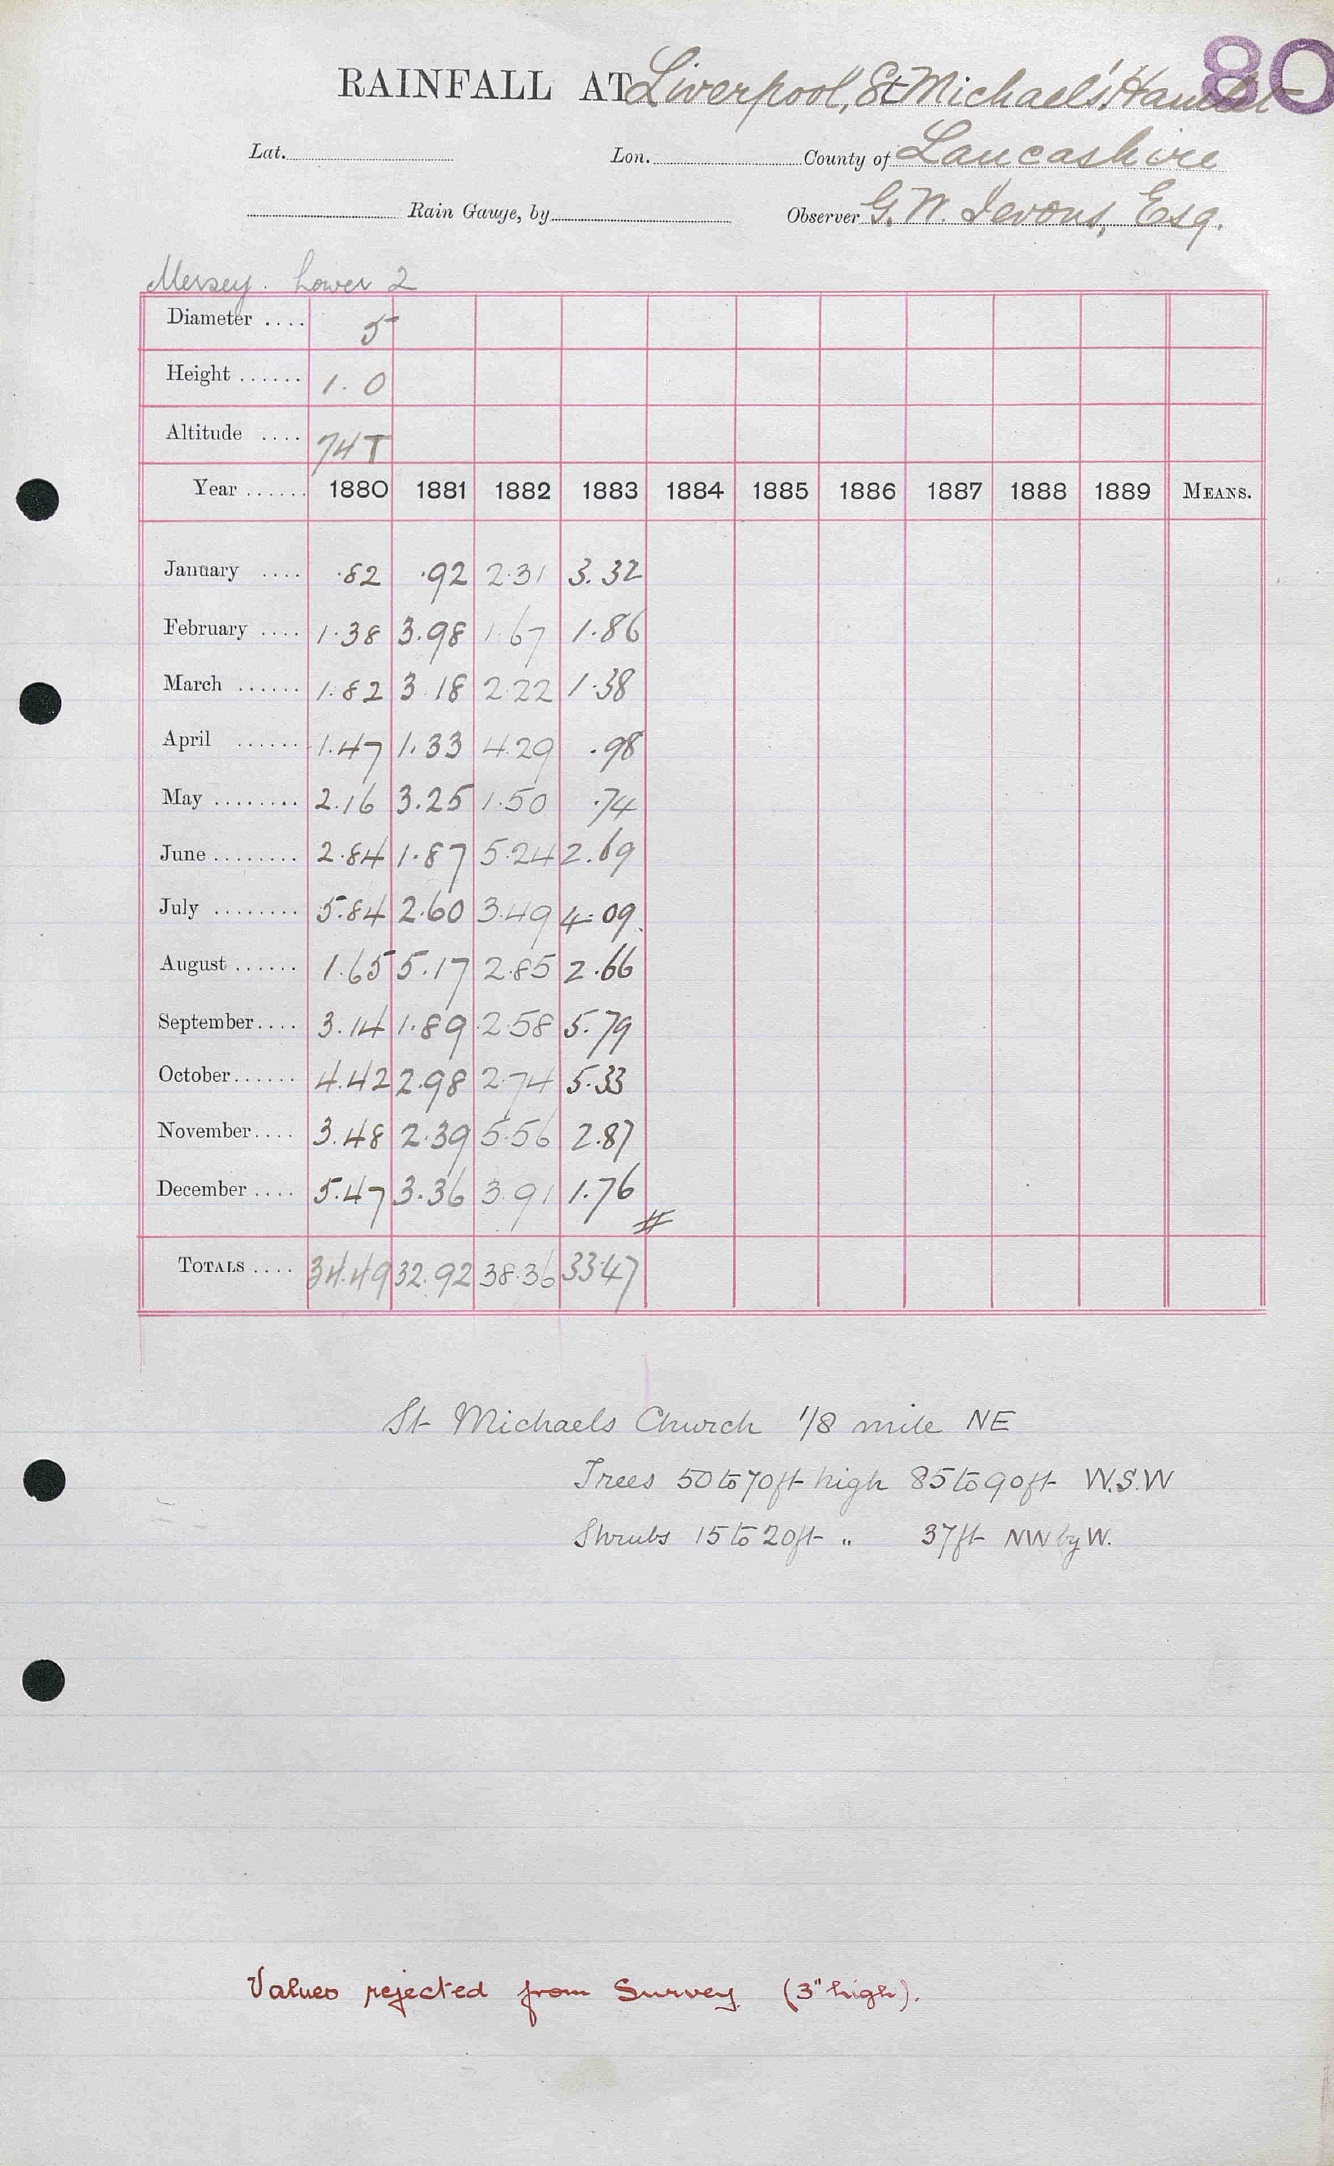 80
RAINFALL AT Liverpool, St Michael's Hamlet
Lat. Lon. County of Lancashire
Rain Gauge, by Observer G. W. Jevons, Esq.
Mersey. Lower 2
Diameter .... 5
Height ...... 1. 0
Altitude .... 74 T
Year ...... 1880 1881 1882 1883 1884 1885 1886 1887 1888 1889 MEANS.
January .... .82 .92 2.31 3.32
February .... 1.38 3.98 1.67 1.86
March ...... 1.82 3.18 2.22 1.38
April ...... 1.47 1.33 4.29 .98
May ........ 2.16 3.25 1.50 .74
June ........ 2.84 1.87 5.24 2.69
July ........ 5.84 2.60 3.49 4.09
August ...... 1.65 5.17 2.85 2.66
September .... 3.14 1.89 2.58 5.79
October ...... 4.42 2.98 2.74 5.33
November .... 3.48 2.39 5.56 2.87
December .... 5.47 3.36 3.91 1.76
#
TOTALS .... 34.49 32.92 38.36 33.47
St Michaels Church 1/8 mile NE
Trees 50 to 70ft high 85 to 90ft W.S.W
Shrubs 15 to 20ft „ 37ft NW by W.
Values rejected from Survey. (3" high).